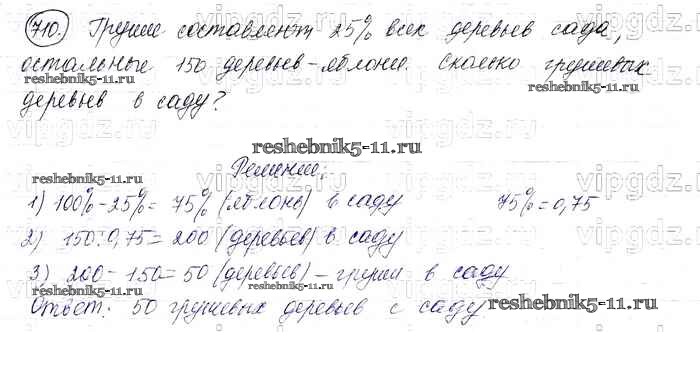 710. Груши составляют 25% всех деревьев сада,
остальные 150 деревьев - яблони. Сколько грушевых
reshebnik5-11.ru reshebnik5-11.ru
деревьев в саду?
reshebnik5-11.ru
Решение:
reshebnik5-11.ru
1) 100%-25%= 75% (яблонь) в саду 75%=0,75
2) 150:0,75=200 (деревьев) в саду
3) 200-150=50 (деревьев) - груши в саду
reshebnik5-11.ru reshebnik5-11.ru reshebnik5-11.ru
Ответ: 50 грушевых деревьев с саду.
vipgdz.ru vipgdz.ru vipgdz.ru vipgdz.ru